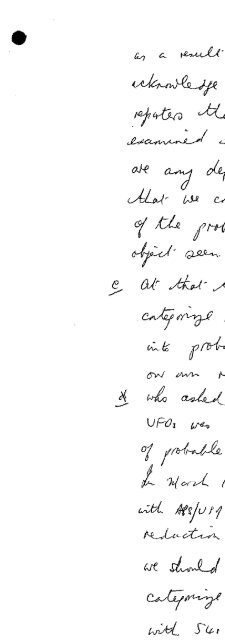 as a result
acknowledge
reporters the
examined
are any dep
that we ca
of the prob
object seen
c At that
categorize
into proba
our own
d who asked
UFOs was
of probable
In March
with
reduction
we should
categorize
with S4